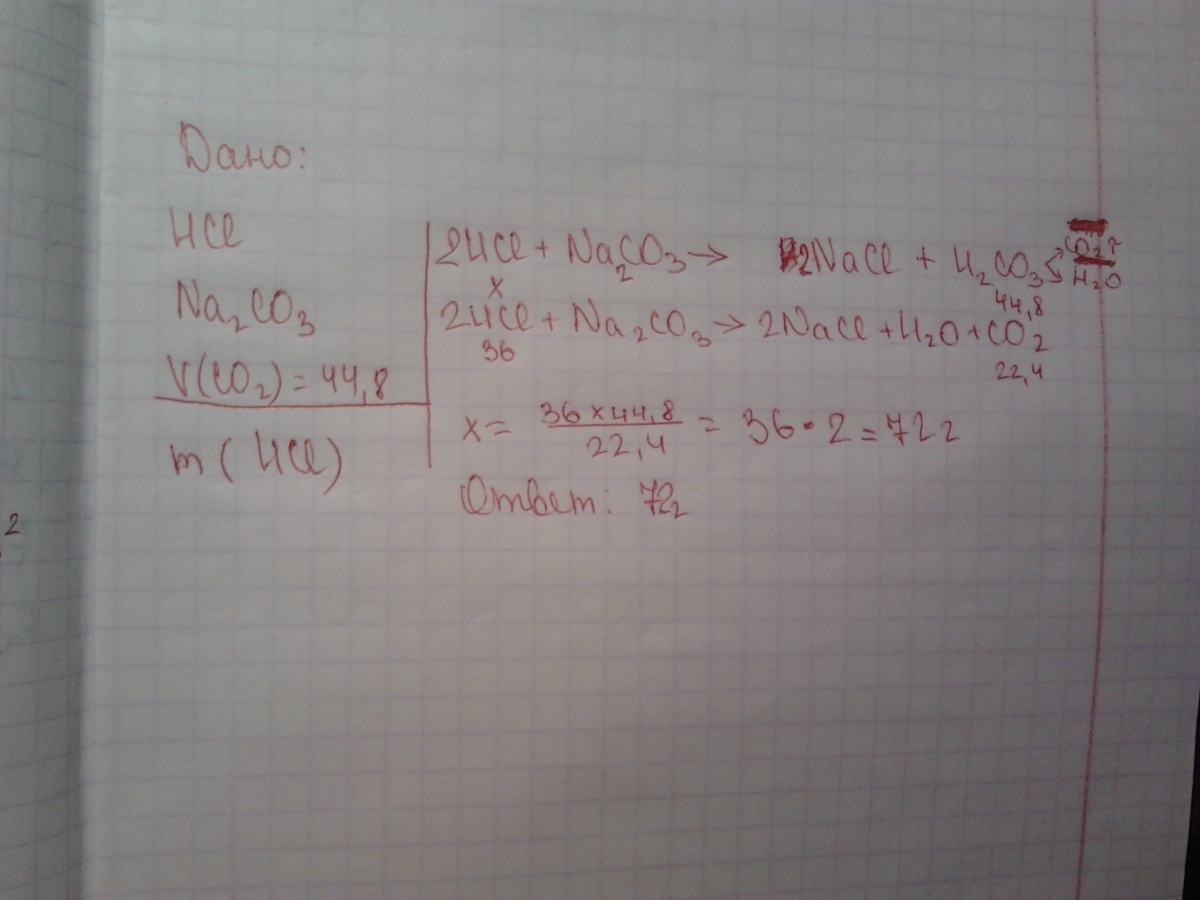 Дано:
HCl
Na₂CO₃
V(CO₂) = 44,8
m (HCl)
2HCl + Na₂CO₃ → 2NaCl + H₂CO₃ < CO₂↑
H₂O
x 44,8
2HCl + Na₂CO₃ → 2NaCl + H₂O + CO₂
36 22,4
x = 36 × 44,8 / 22,4 = 36 · 2 = 72 г
Ответ: 72г
2